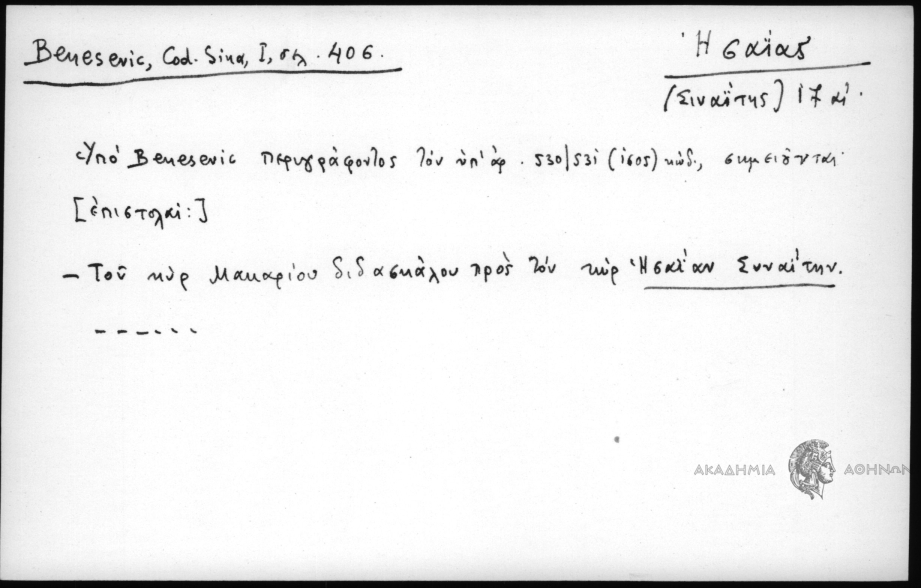 Benesevic, Cod. Sina, I, σελ. 406.
Ἡσαΐας
(Σιναΐτης) 17 αἰ.
Ὑπό Benesevic περιγράφοντος τόν ὑπ' ἀρ. 530/531 (1605) κώδ., σημειοῦνται
[ἐπιστολαί:]
– Τοῦ κύρ Μακαρίου διδασκάλου πρὸς τόν κύρ Ἡσαΐαν Συναΐτην.
– – – – – –
ΑΚΑΔΗΜΙΑ ΑΘΗΝΩΝ